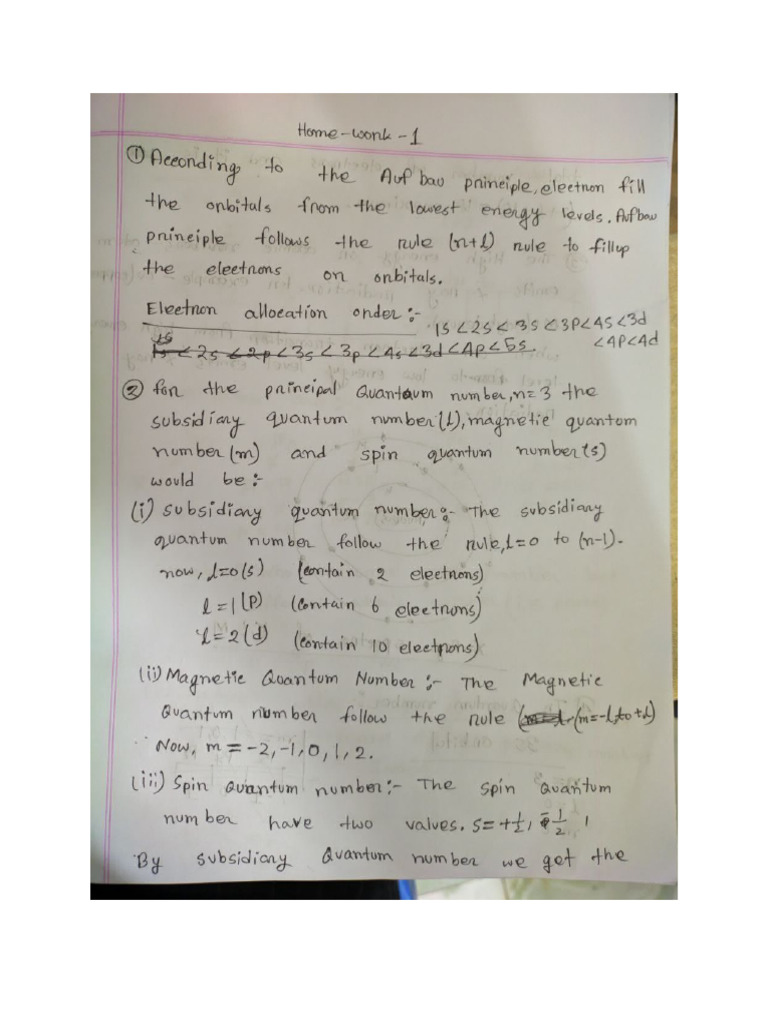 Home-work-1
① According to the Aufbau principle, electron fill
the orbitals from the lowest energy levels. Aufbau
principle follows the rule (n+l) rule to fillup
the electrons on orbitals.
Electron allocation order:-
1S<2S<3S<3P<4S<3d
<4P<4d
1s<2s<2p<3s<3p<4s<3d<4p<5s.
② for the principal Quantum number, n=3 the
subsidiary quantum number (l), magnetic quantum
number (m) and spin quantum number (s)
would be:-
(i) Subsidiary quantum number:- The subsidiary
quantum number follow the rule, l=0 to (n-1).
now, l=0(s) (contain 2 electrons)
l=1(P) (contain 6 electrons)
l=2(d) (contain 10 electrons)
(ii) Magnetic Quantum Number:- The Magnetic
Quantum number follow the rule (m=-l to +l)
Now, m=-2,-1,0,1,2.
(iii) Spin Quantum number:- The spin Quantum
number have two values. s=+1/2, -1/2,
By subsidiary Quantum number we get the